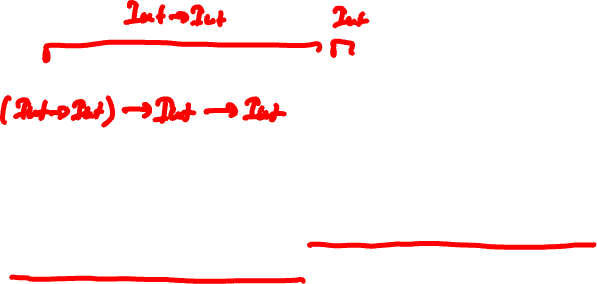 Int→Int Int
(Int→Int) → Int → Int